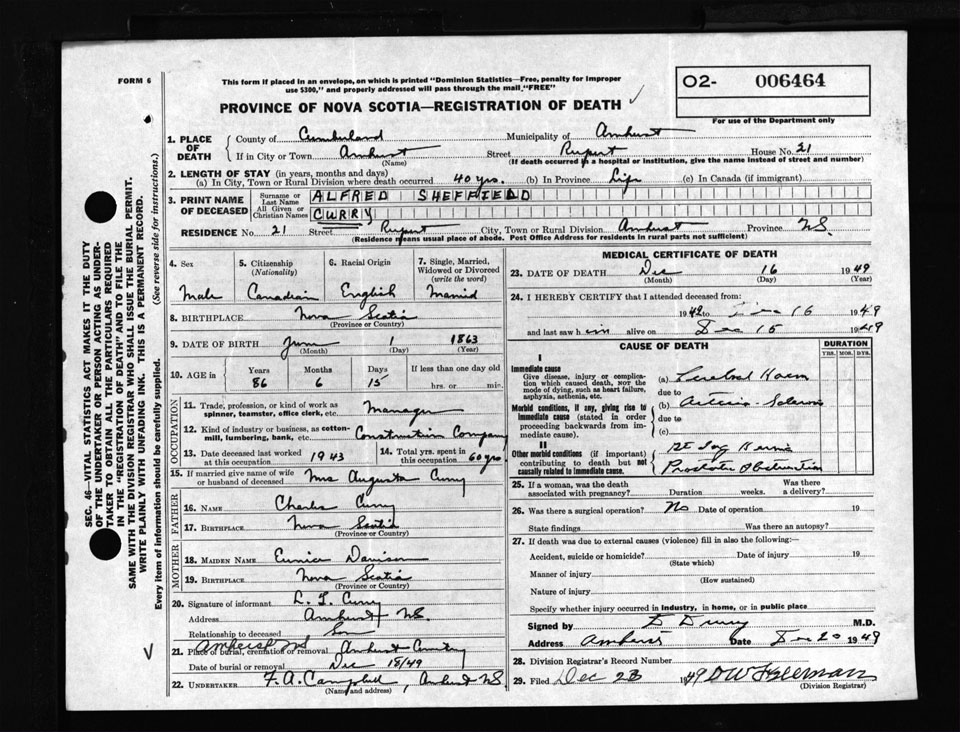 FORM 6
This form if placed in an envelope, on which is printed "Dominion Statistics—Free, penalty for improper
use $300," and properly addressed will pass through the mail "FREE"
PROVINCE OF NOVA SCOTIA—REGISTRATION OF DEATH
O2- 006464
For use of the Department only
SEC. 46—VITAL STATISTICS ACT MAKES IT THE DUTY
OF THE UNDERTAKER OR PERSON ACTING AS UNDER-
TAKER TO OBTAIN ALL THE PARTICULARS REQUIRED
IN THE "REGISTRATION OF DEATH" AND TO FILE THE
SAME WITH THE DIVISION REGISTRAR WHO SHALL ISSUE THE BURIAL PERMIT.
WRITE PLAINLY WITH UNFADING INK. THIS IS A PERMANENT RECORD.
Every item of information should be carefully supplied. (See reverse side for instructions.)
1. PLACE OF DEATH
County of Cumberland Municipality of Amherst
If in City or Town Amherst Street Rupert House No. 21
(Name) (If death occurred in a hospital or institution, give the name instead of street and number)
2. LENGTH OF STAY (in years, months and days)
(a) In City, Town or Rural Division where death occurred 40 yrs. (b) In Province Life (c) In Canada (if immigrant)
3. PRINT NAME OF DECEASED
Surname or Last Name ALFRED SHEFFIELD
All Given or Christian Names CURRY
RESIDENCE No. 21 Street Rupert City, Town or Rural Division Amherst Province NS.
(Residence means usual place of abode. Post Office Address for residents in rural parts not sufficient)
4. Sex Male
5. Citizenship (Nationality) Canadian
6. Racial Origin English
7. Single, Married, Widowed or Divorced (write the word) Married
8. BIRTHPLACE Nova Scotia
(Province or Country)
9. DATE OF BIRTH June 1 1863
(Month) (Day) (Year)
10. AGE in Years 86 Months 6 Days 15 If less than one day old hrs. or min.
OCCUPATION
11. Trade, profession, or kind of work as spinner, teamster, office clerk, etc. Manager
12. Kind of industry or business, as cotton-mill, lumbering, bank, etc. Construction Company
13. Date deceased last worked at this occupation 1943
14. Total yrs. spent in this occupation 60 yrs
15. If married give name of wife or husband of deceased Mrs Augusta Curry
FATHER
16. Name Charles Curry
17. Birthplace Nova Scotia
(Province or Country)
MOTHER
18. MAIDEN NAME Eunice Davison
19. BIRTHPLACE Nova Scotia
(Province or Country)
20. Signature of informant L. T. Curry
Address Amherst NS.
Relationship to deceased Son
Amherst NS
21. Place of burial, cremation or removal Amherst Cemetery
Date of burial or removal Dec 18/49
22. UNDERTAKER F. A. Campbell, Amherst NS
(Name and address)
MEDICAL CERTIFICATE OF DEATH
23. DATE OF DEATH Dec 16 1949
(Month) (Day) (Year)
24. I HEREBY CERTIFY that I attended deceased from:
1942 to Dec 16 1949
and last saw him alive on Dec 15 1949
CAUSE OF DEATH
DURATION
YRS. MOS. DYS.
I
Immediate cause
Give disease, injury or complication which caused death, not the mode of dying, such as heart failure, asphyxia, asthenia, etc.
(a) Cerebral Haem
due to
Morbid conditions, if any, giving rise to immediate cause (stated in order proceeding backwards from immediate cause).
(b) Arterio-Sclerosis
due to
(c)
II
Other morbid conditions (if important) contributing to death but not causally related to immediate cause.
Rt Ing Hernia
Prostatic Obstruction
25. If a woman, was the death associated with pregnancy? Duration weeks. Was there a delivery?
26. Was there a surgical operation? No Date of operation 19
State findings Was there an autopsy?
27. If death was due to external causes (violence) fill in also the following:—
Accident, suicide or homicide? Date of injury 19
(State which)
Manner of injury
(How sustained)
Nature of injury
Specify whether injury occurred in industry, in home, or in public place
Signed by M.D.
Address Amherst Date Dec 20 1949
28. Division Registrar's Record Number
29. Filed Dec 23 1949 DW Freeman
(Division Registrar)